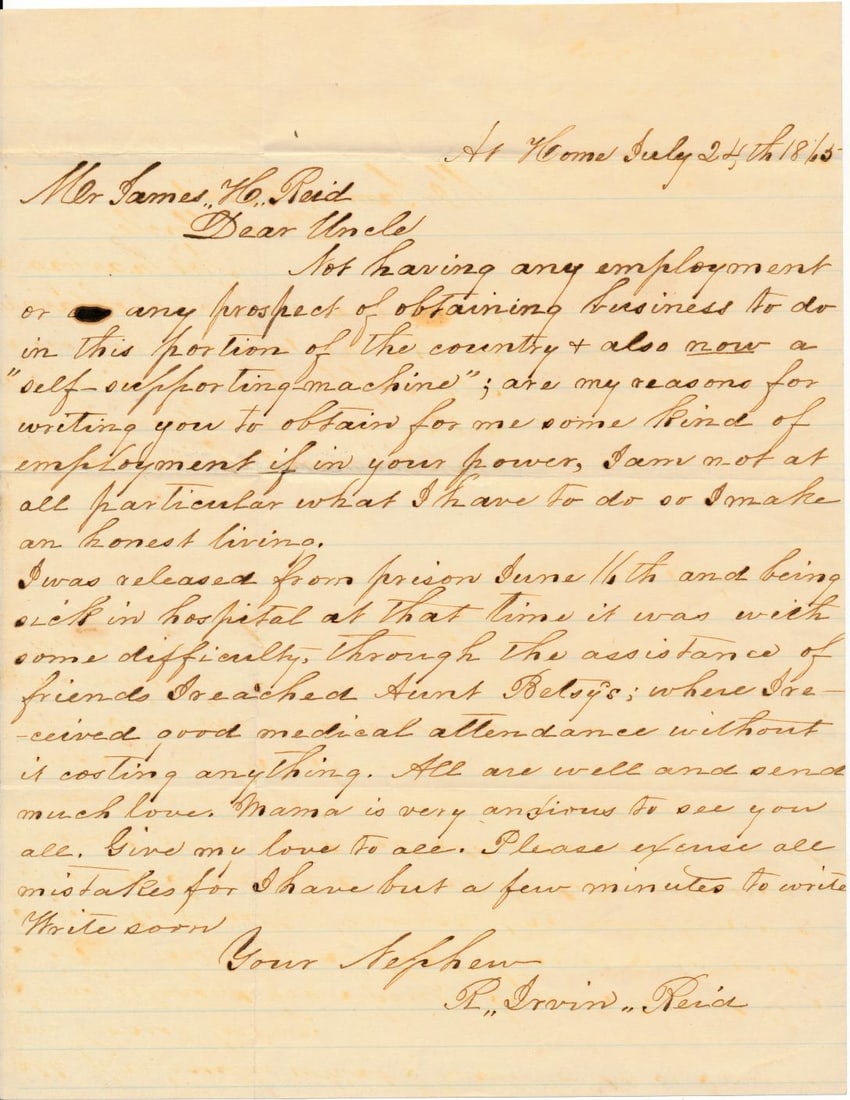 At Home July 24th 1865
Mr James,, H,, Reid
Dear Uncle
Not having any employment
or any prospect of obtaining business to do
in this portion of the country + also now a
"self-supporting-machine"; are my reasons for
writing you to obtain for me some kind of
employment if in your power, I am not at
all particular what I have to do so I make
an honest living.
I was released from prison June 16th and being
sick in hospital at that time it was with
some difficulty, through the assistance of
friends I reached Aunt Betsy's; where I re-
-ceived good medical attendance without
it costing anything. All are well and send
much love. Mama is very anxious to see you
all. Give my love to all. Please excuse all
mistakes for I have but a few minutes to write
Write soon
Your Nephew
R,, Irvin,, Reid